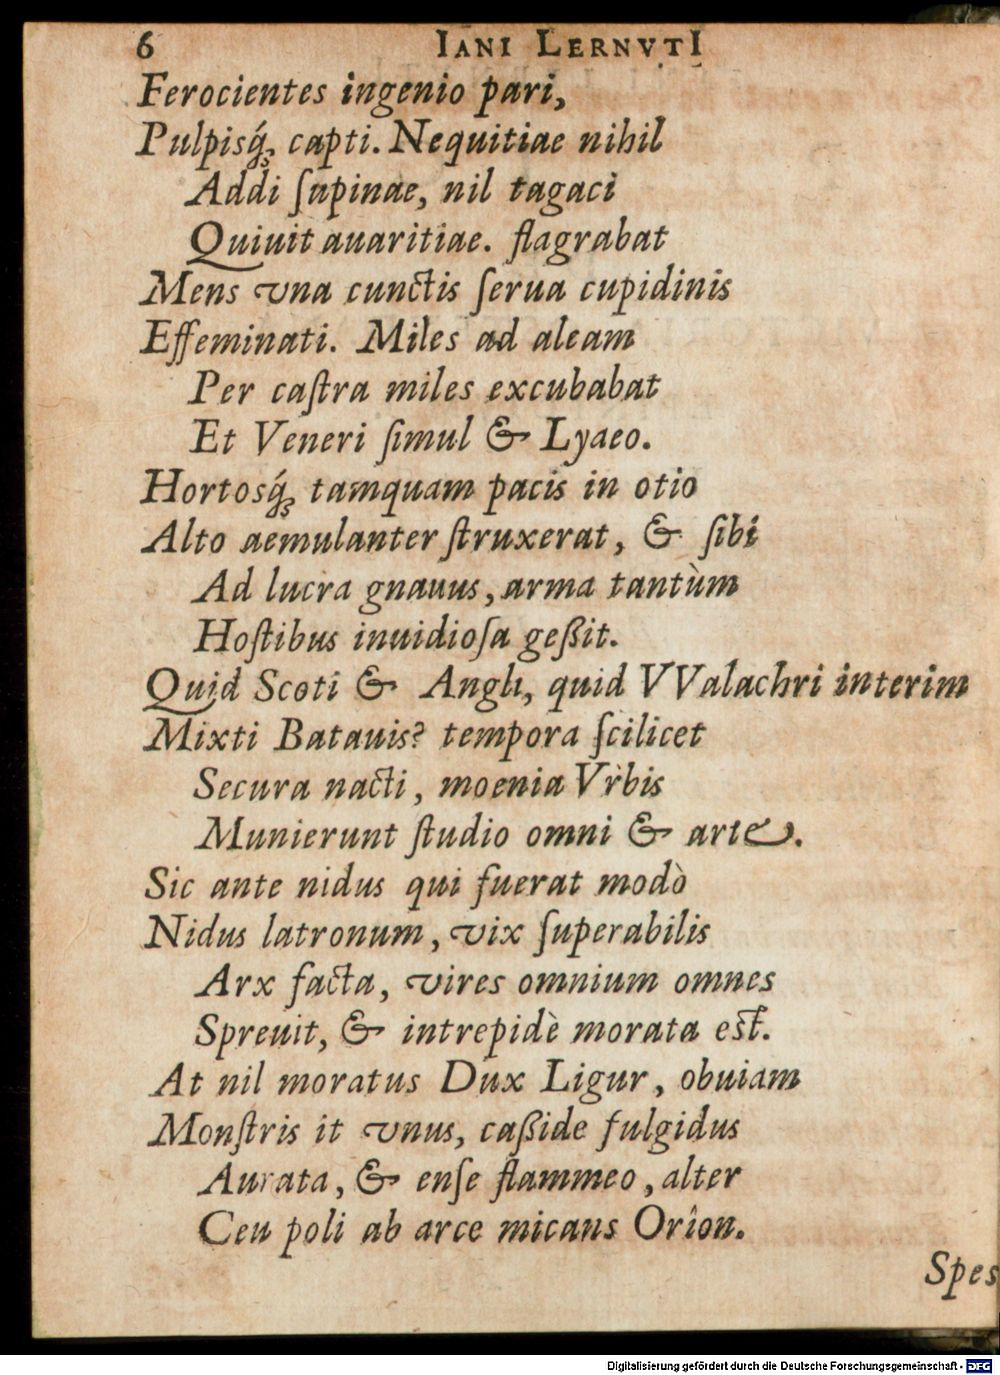 6 IANI LERNVTI
Ferocientes ingenio pari,
Pulpisq́ꝫ capti. Nequitiae nihil
Addi ſupinae, nil tagaci
Quiuit auaritiae. flagrabat
Mens vna cunctis ſerua cupidinis
Effeminati. Miles ad aleam
Per caſtra miles excubabat
Et Veneri ſimul & Lyaeo.
Hortosq́ꝫ tamquam pacis in otio
Alto aemulanter ſtruxerat, & ſibi
Ad lucra gnauus, arma tantùm
Hoſtibus inuidioſa geßit.
Quid Scoti & Angli, quid VValachri interim
Mixti Batauis? tempora ſcilicet
Secura nacti, moenia Vrbis
Munierunt ſtudio omni & arte.
Sic ante nidus qui fuerat modò
Nidus latronum, vix ſuperabilis
Arx facta, vires omnium omnes
Spreuit, & intrepidè morata eſt.
At nil moratus Dux Ligur, obuiam
Monſtris it vnus, caßide fulgidus
Aurata, & enſe flammeo, alter
Ceu poli ab arce micans Orîon.
Spes
Digitalisierung gefördert durch die Deutsche Forschungsgemeinschaft - DFG